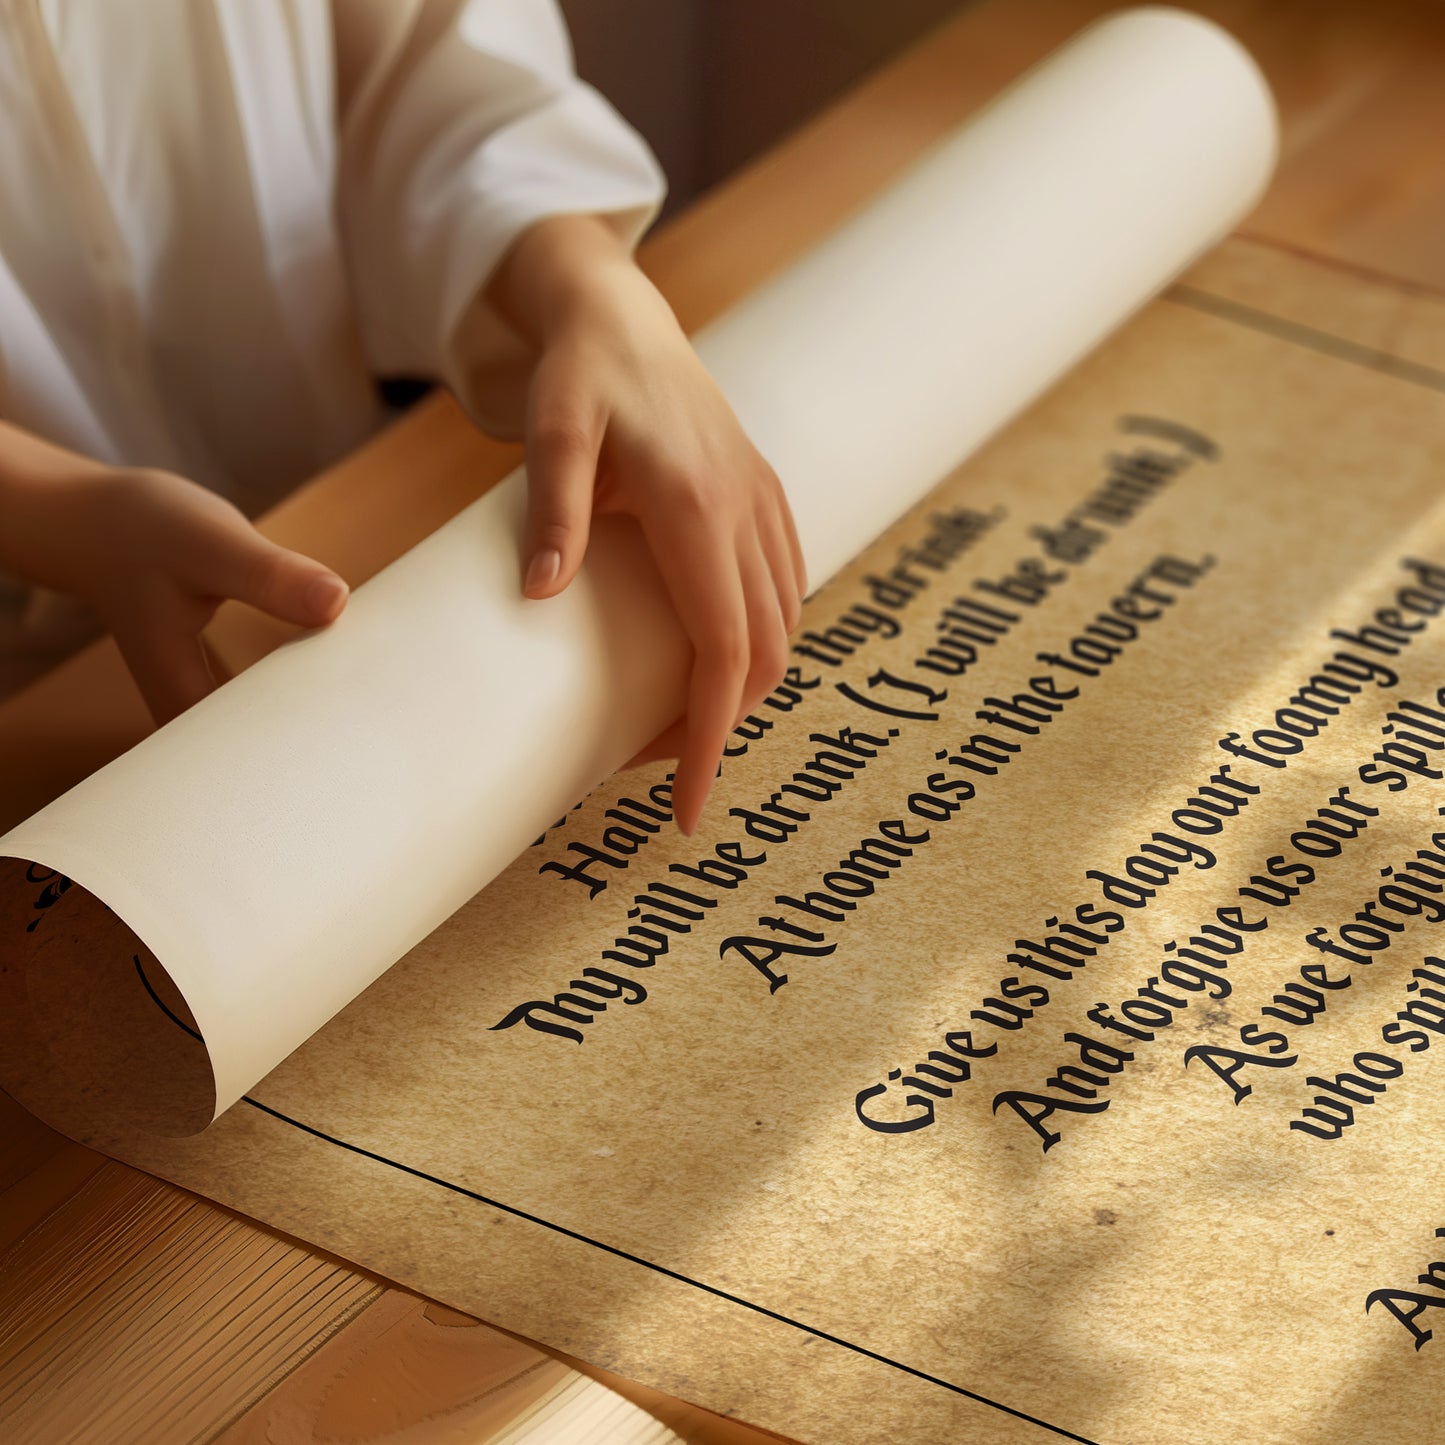 be thy drink.
My will be drunk. (I will be drunk.)
At home as in the tavern.
Give us this day our foamy head
And forgive us our
As we forgive
who spill